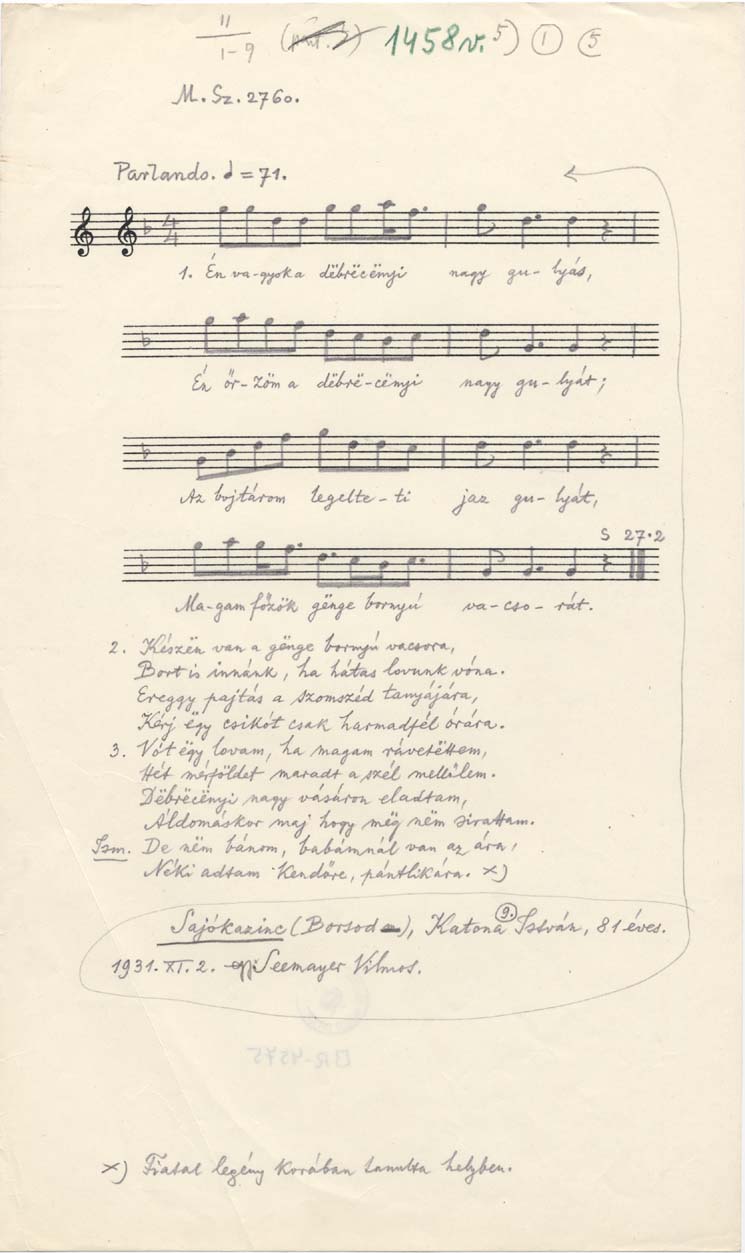 II
1-9
1458v. 5) 1 5
M. Sz. 2760.
Parlando. = 71.
4
4
1. Én va-gyok a dëbrëcënyi nagy gu-lyás,
Én őr-zöm a dëbrë-cënyi nagy gu-lyát;
Az bojtárom legelte-ti jaz gu-lyát,
S 27.2
Ma-gam főzök gënge bornyú va-cso-rát.
2. Készën van a gënge bornyú vacsora,
Bort is innánk, ha hátas lovunk vóna.
Ereggy pajtás a szomszéd tanyájára,
Kérj ëgy csikót csak harmadfél órára.
3. Vót ëgy lovam, ha magam rávetëttem,
Hét mérföldet maradt a szél mellőlem.
Dëbrëcënyi nagy vásáron eladtam,
Áldomáskor maj hogy mëg nëm sirattam.
Ism. De nëm bánom, babámnál van az ára,
Néki adtam kendőre, pántlikára. x)
Sajókazinc (Borsod), Katona István, 81 éves.
9.
1931. XI. 2. Seemayer Vilmos.
R-4575
x) Fiatal legény korában tanulta helyben.